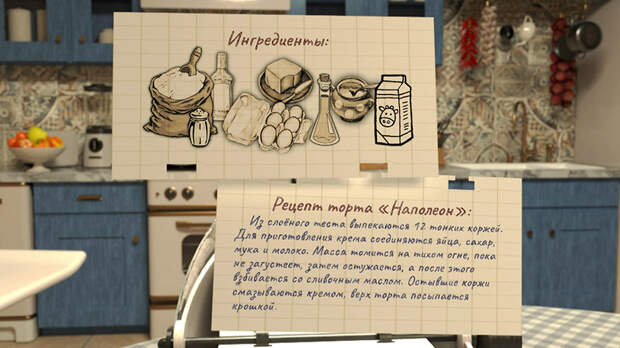 Ингредиенты:
Рецепт торта «Наполеон»:
Из слоёного теста выпекаются 12 тонких коржей.
Для приготовления крема соединяются яйца, сахар,
мука и молоко. Масса томится на тихом огне, пока
не загустеет, затем остужается, а после этого
взбивается со сливочным маслом. Остывшие коржи
смазываются кремом, верх торта посыпается
крошкой.